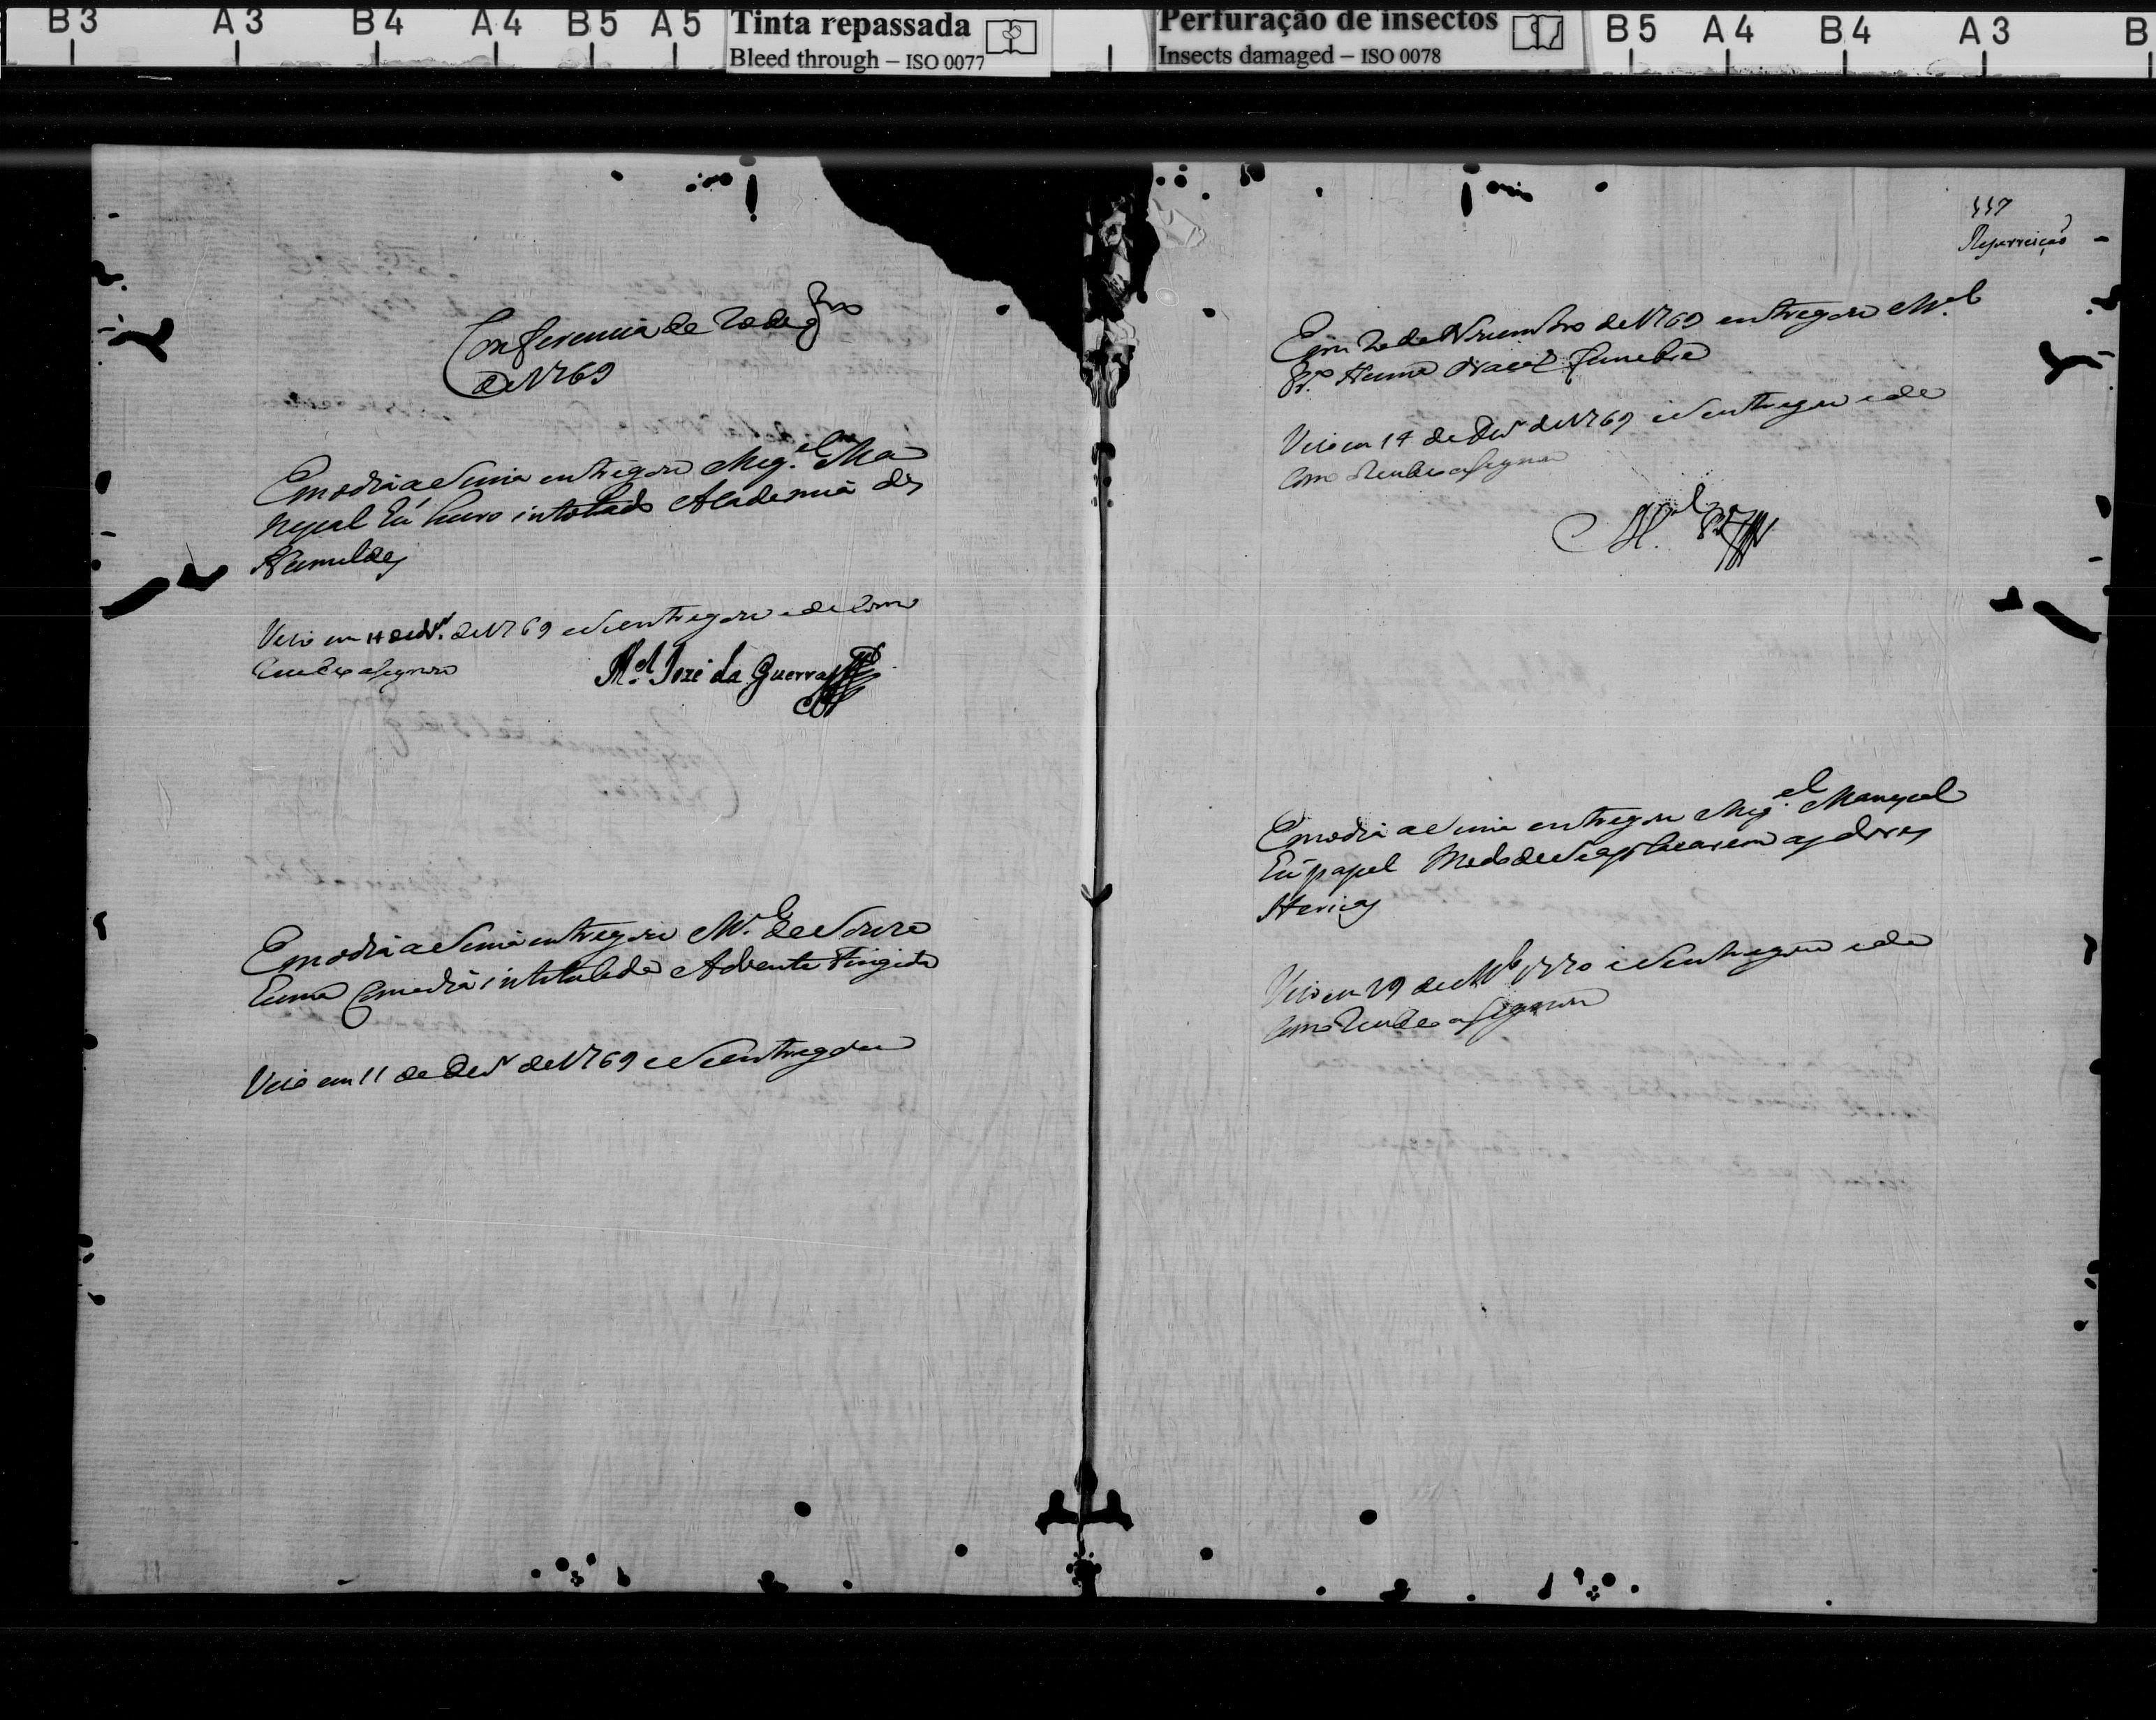 B3 A3 B4 A4 B5 A5
Tinta repassada
Bleed through – ISO 0077
Perfuração de insectos
Insects damaged – ISO 0078
B5 A4 B4 A3 B
Conferencia de 20 de 9bro
de 1769
Em o dia asima entregou Mig.el Ma
nescal hú livro intitulado Academia dos
Humildes
Veio em 14 de de 1769 e se entregou e de como
Recebeo asignou
M.el Joze da Guerra
Em o dia asima entregou M.el de Souza
huma Comedia intitulada Adoente Fingida
Veio em 11 de Dezr de 1769 e se entregou
117
Repartição
Em 20 de Novembro de 1769 entregou M.el
Pr.a Huma Oracaõ funebre
Veio em 14 de Dezr de 1769 e se entregou e de
Como Recebeo asignou
M.el
Em o dia asima entregou Mig.el Manescal
hú papel Modo de se as
Veio em 29 de 1770 e se entregou e de
Como Recebeo asignou